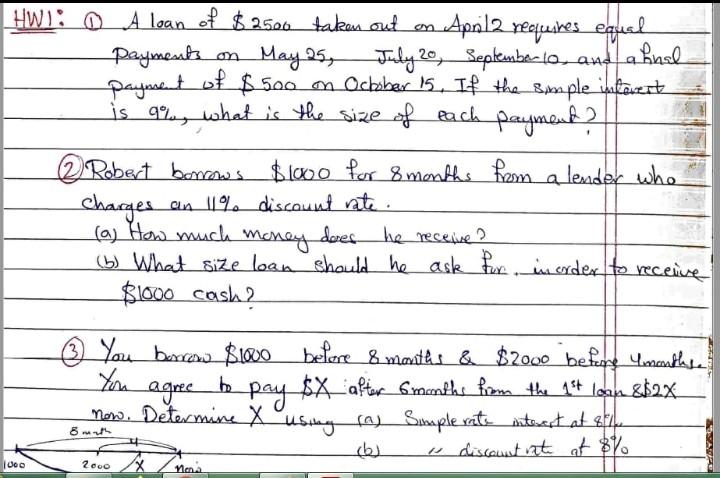 HW1: ① A loan of $2500 taken out on April 2 requires equal
payments on May 25, July 20, September 10, and a final
payment of $500 on October 15. If the simple interest
is 9%, what is the size of each payment?
② Robert borrows $1000 for 8 months from a lender who
charges an 11% discount rate.
(a) How much money does he receive?
(b) What size loan should he ask for, in order to receive
$1000 cash?
③ You borrow $1000 before 8 months & $2000 before 4 months.
You agree to pay $X after 6 months from the 1st loan & $2X
now. Determine X using (a) Simple rate interest at 8%
8 month
4
(b) " discount rate at 8%
1000 2000 X Now